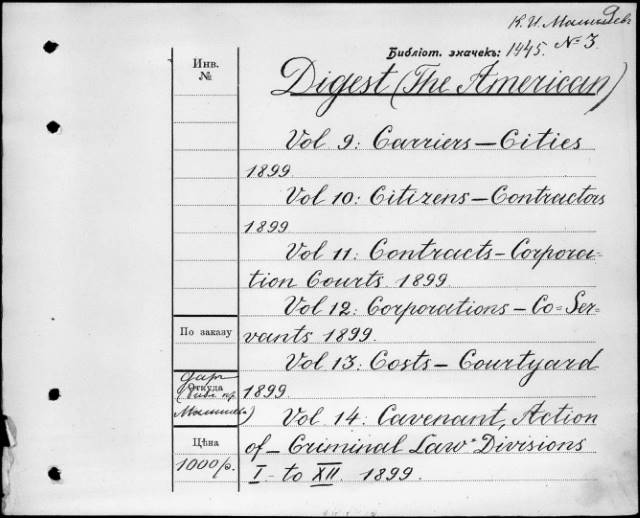 К. И. Малышев
Библіот. значекъ: 1445. № 3.
Инв.
№
Digest (The American)
Vol 9: Carriers — Cities
1899.
Vol 10: Citizens — Contractors
1899
Vol 11: Contracts — Corpora=
tion Courts. 1899.
Vol 12: Corporations — Co=Ser-
По заказу
vants 1899.
Vol 13: Costs — Courtyard
Даръ
Откуда
1899.
Малышева)
Vol. 14: Cavenant, Action
Цѣна
of — Criminal Law Divisions
1000 р.
I to XII. 1899.